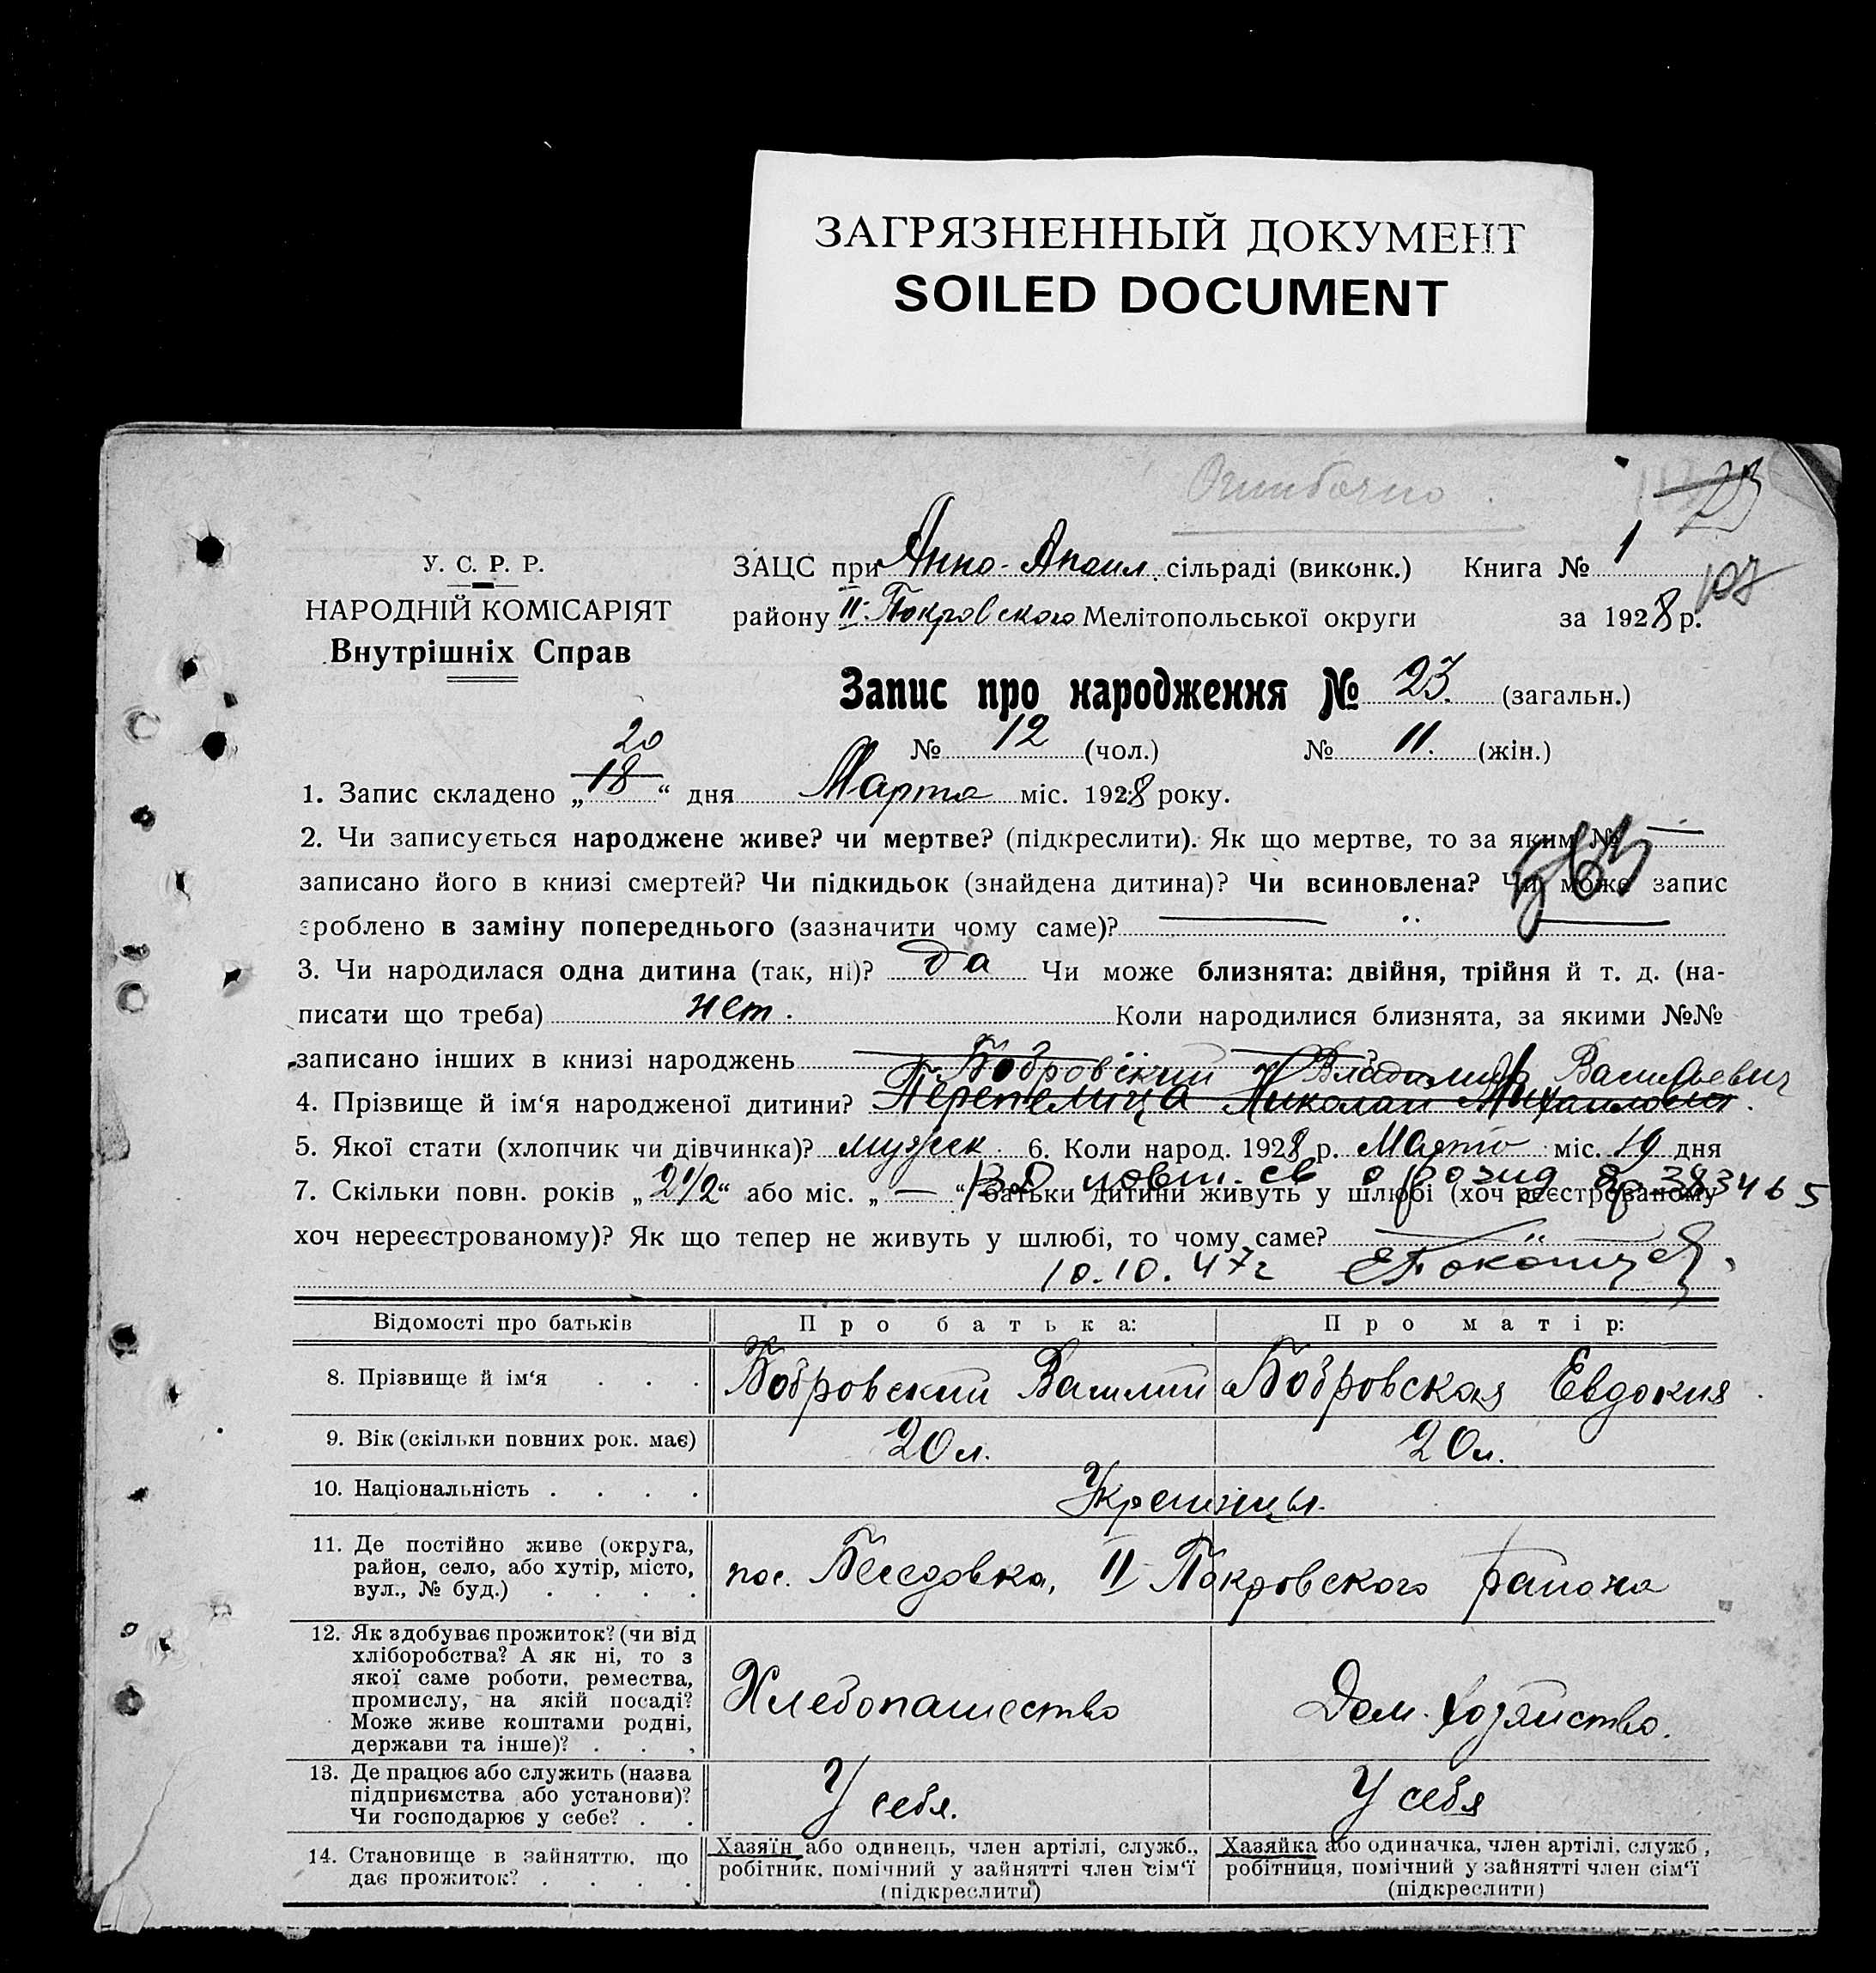 ЗАГРЯЗНЕННЫЙ ДОКУМЕНТ
SOILED DOCUMENT
Ошибочно
23
107
У. С. Р. Р.
НАРОДНІЙ КОМІСАРІЯТ
Внутрішніх Справ
ЗАЦС при Анно-Апаил. сільраді (виконк.) Книга № 1
району II-Покровского Мелітопольської округи за 1928 р.
Запис про народження № 23. (загальн.)
№ 12 (чол.) № 11. (жін.)
20
1. Запис складено „18“ дня Марта міс. 1928 року.
2. Чи записується народжене живе? чи мертве? (підкреслити). Як що мертве, то за яким № —
записано його в книзі смертей? Чи підкидьок (знайдена дитина)? Чи всиновлена? Чи може запис
зроблено в заміну попереднього (зазначити чому саме)?
3. Чи народилася одна дитина (так, ні)? да Чи може близнята: двійня, трійня й т. д. (на-
писати що треба) нет. Коли народилися близнята, за якими №№
записано інших в книзі народжень
Бобровский Владимир Васильевич
4. Прізвище й ім‘я народженої дитини? Перепелица Николай Михайлович.
5. Якої стати (хлопчик чи дівчинка)? мужск. 6. Коли народ. 1928 р. Марта міс. 19 дня
7. Скільки повн. років „2½“ або міс. „—“ батьки дитини живуть у шлюбі (хоч реєстрованому
хоч нереєстрованому)? Як що тепер не живуть у шлюбі, то чому саме?
10.10.47г
Відомості про батьків Про батька: Про матір:
8. Прізвище й ім‘я . . . Бобровский Василий Бобровская Евдокия
9. Вік (скільки повних рок. має) 20 л. 20 л.
10. Національність . . . . Украинцы.
11. Де постійно живе (округа,
район, село, або хутір, місто,
вул., № буд.) . . . .
пос. Беседовка, II-Покровского района
12. Як здобуває прожиток? (чи від
хліборобства? А як ні, то з
якої саме роботи, ремества,
промислу, на якій посаді?
Може живе коштами родні,
держави та інше)? . . .
Хлебопашество Дом. хозяйство.
13. Де працює або служить (назва
підприємства або установи)?
Чи господарює у себе? . .
У себя. У себя
14. Становище в зайняттю, що
дає прожиток? . . . .
Хазяїн або одинець, член артілі, служб.,
робітник, помічний у зайнятті член сім‘ї
(підкреслити)
Хазяйка або одиначка, член артілі, служб.,
робітниця, помічний у зайнятті член сім‘ї
(підкреслити)